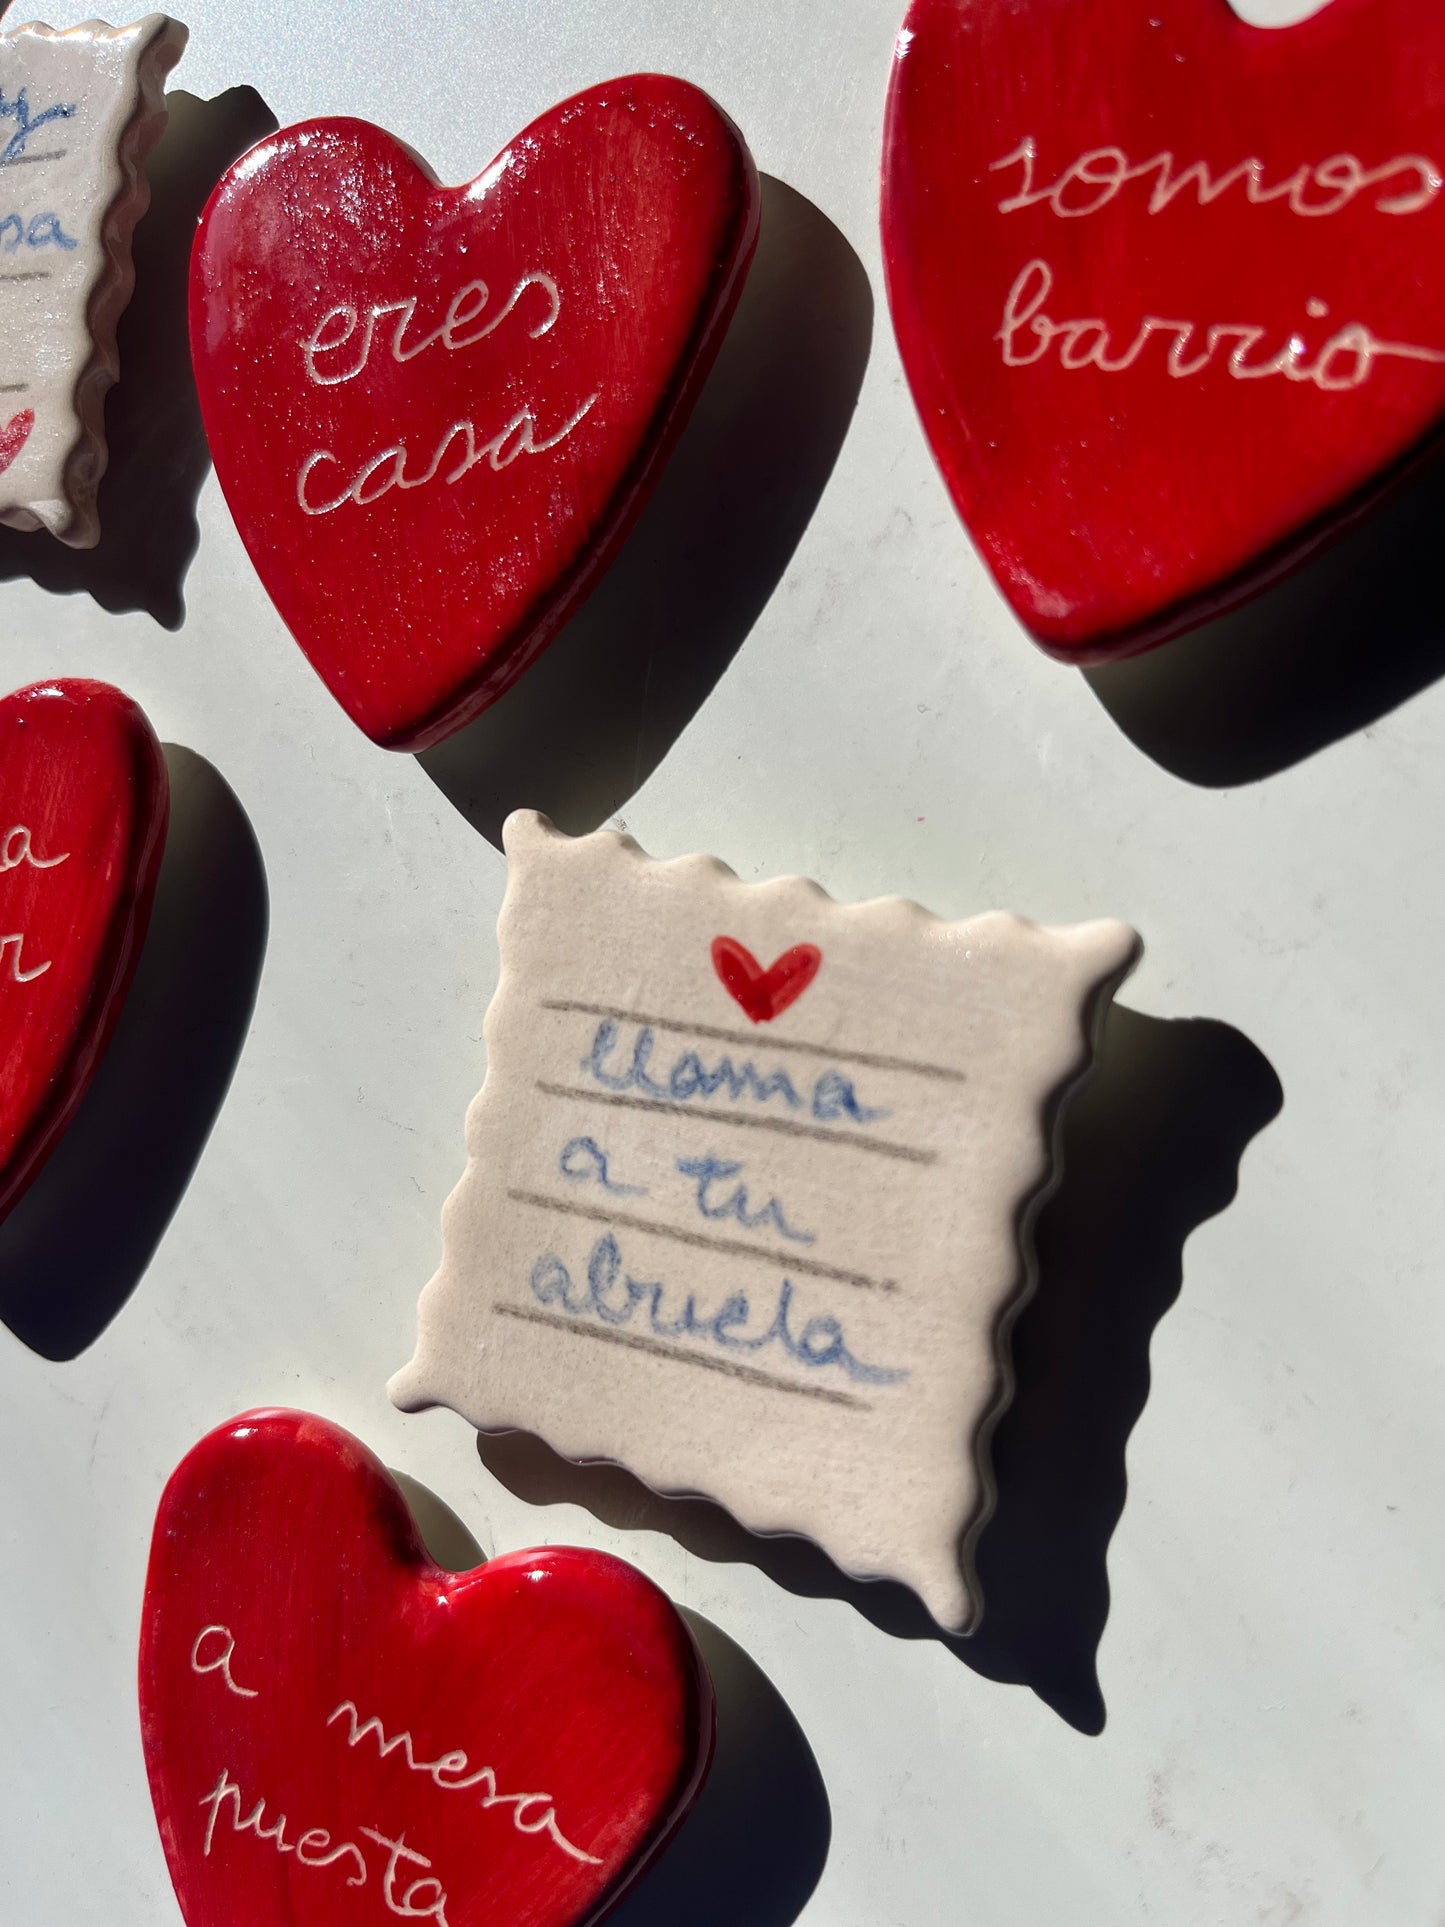 eres
casa
somos
barrio
llama
a tu
abuela
a mesa
puesta